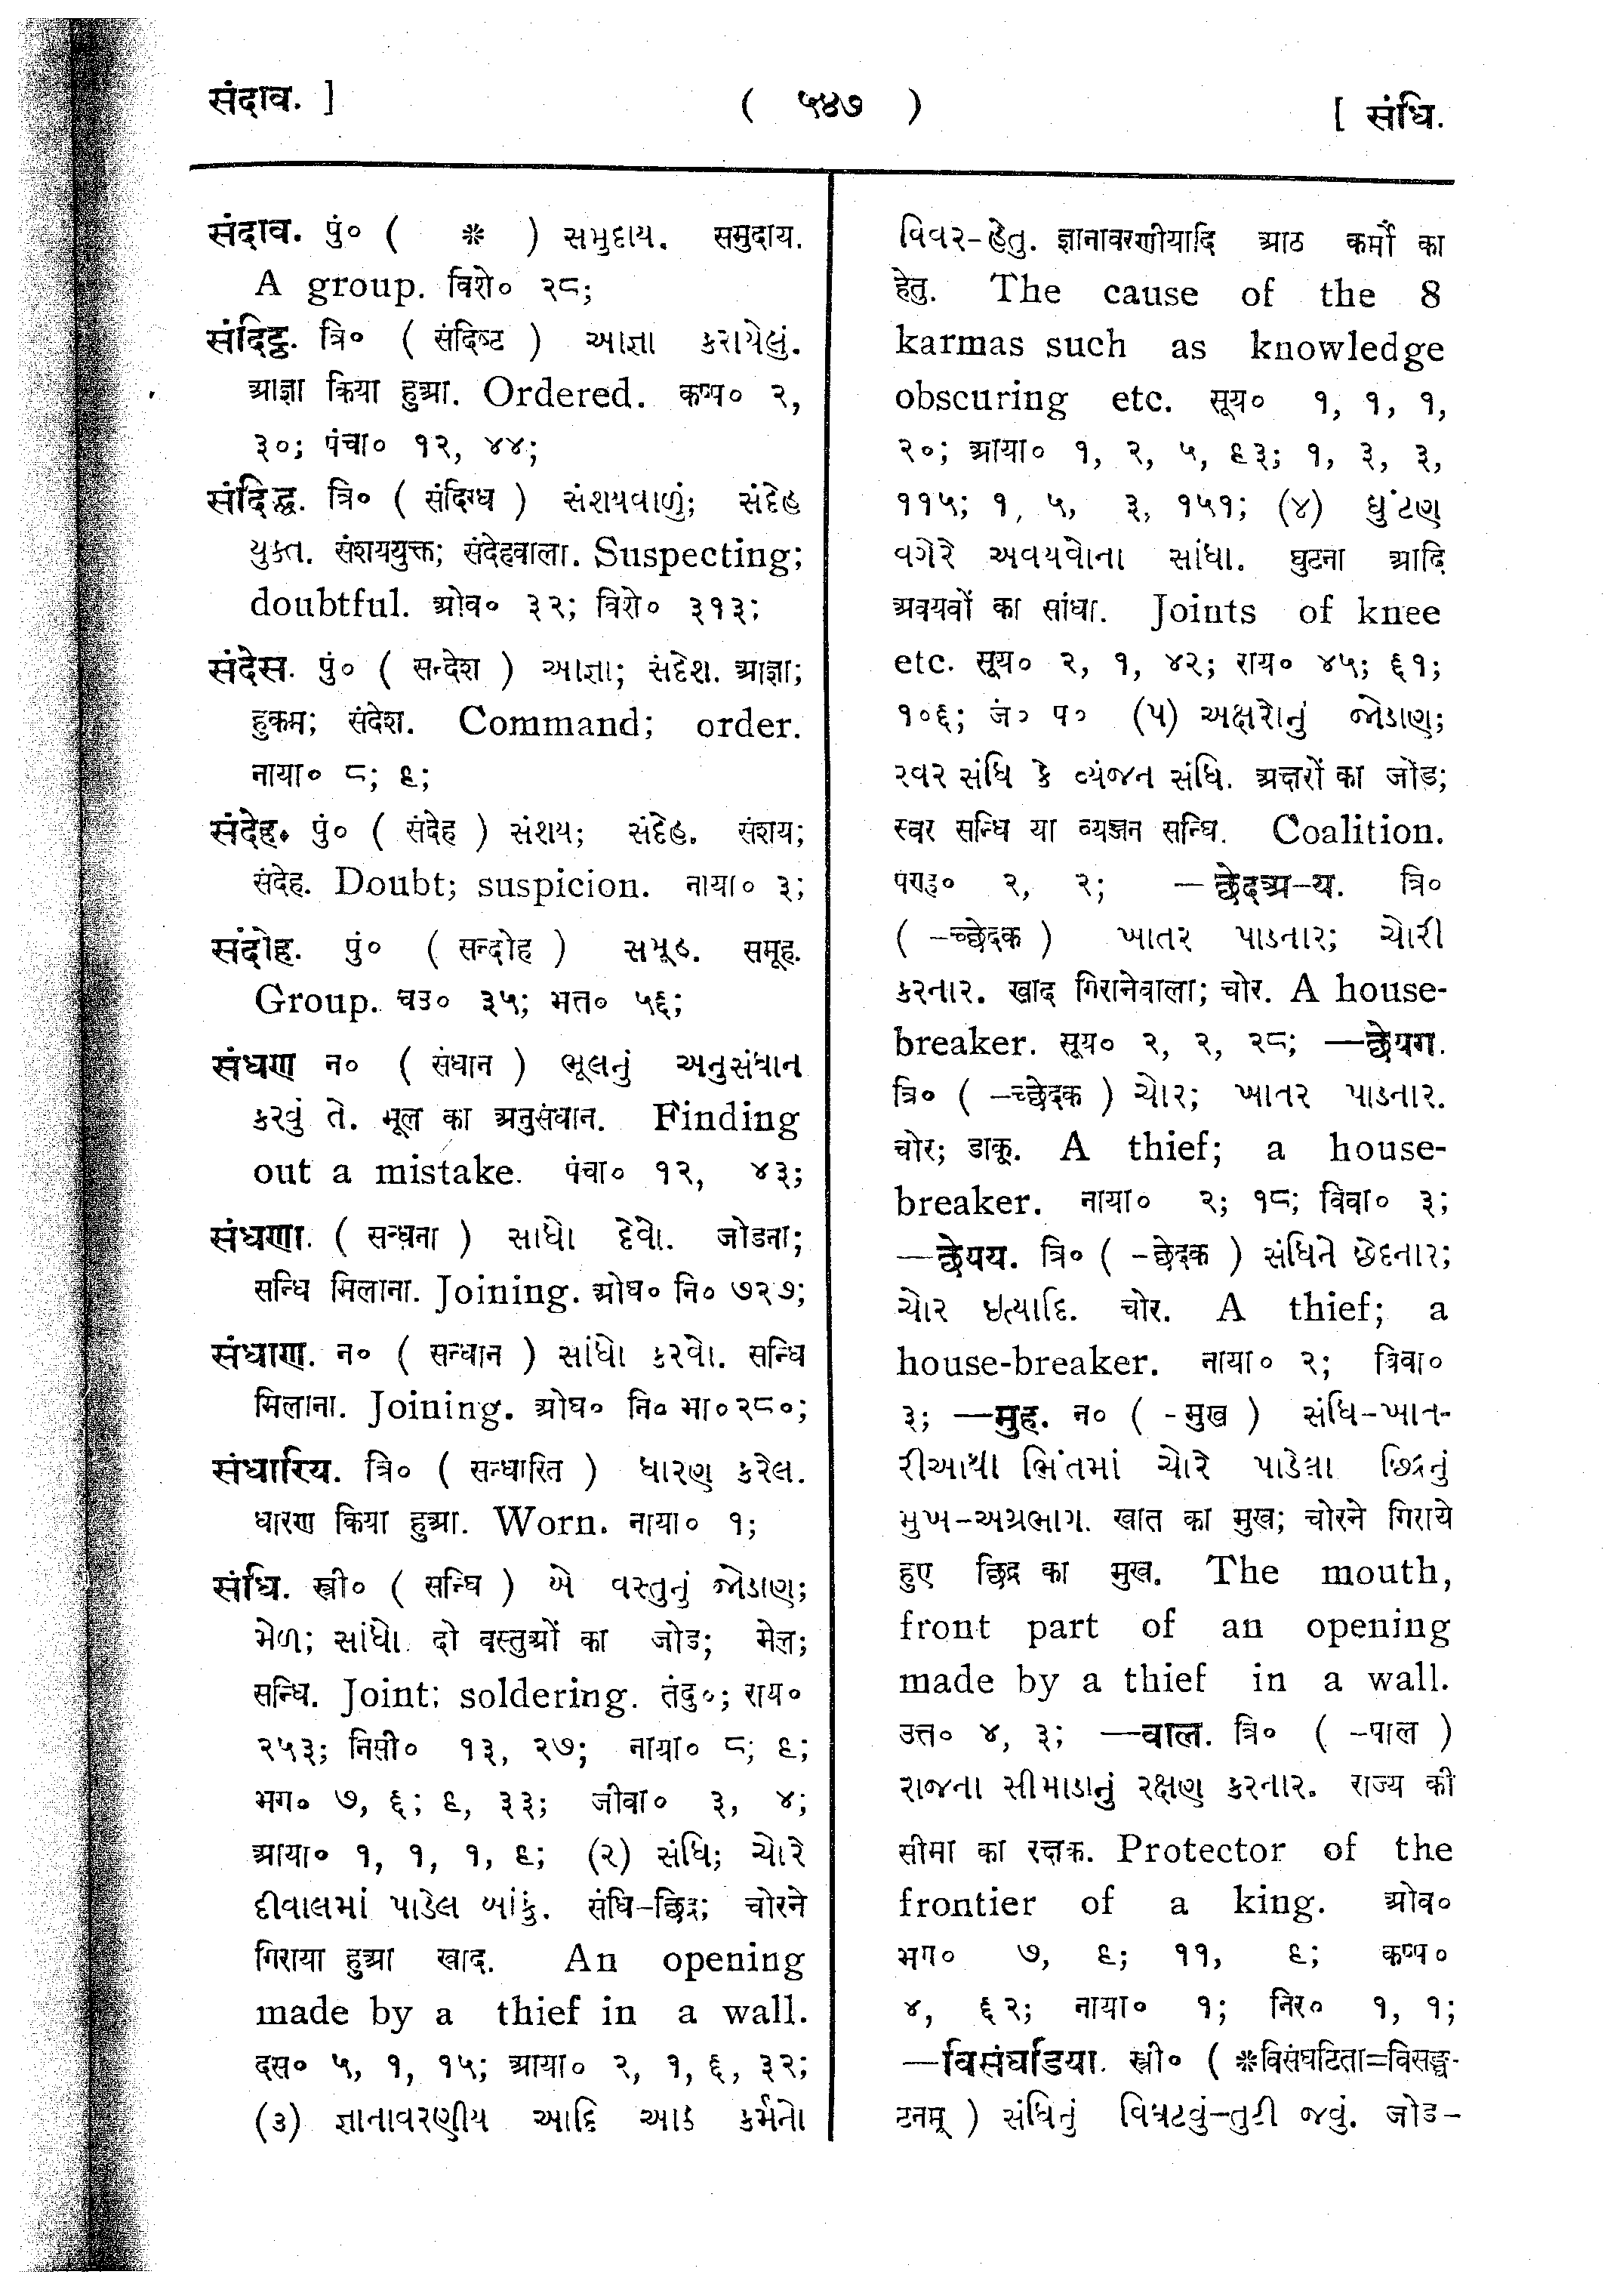 संदाव. ]
( ५४७ )
[ संधि.
संदाव. पुं० ( * ) સમુદાય. समुदाय.
A group. विशे० २८;
संदिट्ठ. त्रि० ( संदिष्ट ) આજ્ઞા કરાયેલું.
आज्ञा किया हुआ. Ordered. कप्प० २,
३०; पंचा० १२, ४४;
संदिद्ध. त्रि० ( संदिग्ध ) સંશયવાળું; સંદેહ
યુક્ત. संशययुक्त; संदेहवाला. Suspecting;
doubtful. ओव० ३२; विशे० ३१३;
संदेस. पुं० ( सन्देश ) આજ્ઞા; સંદેશ. आज्ञा;
हुकम; संदेश. Command; order.
नाया० ८; ९;
संदेह. पुं० ( संदेह ) સંશય; સંદેહ. संशय;
संदेह. Doubt; suspicion. नाया० ३;
संदोह. पुं० ( सन्दोह ) સમૂહ. समूह.
Group. चउ० ३५; भत्त० ५६;
संधण न० ( संधान ) ભૂલનું અનુસંધાન
કરવું તે. भूल का अनुसंधान. Finding
out a mistake. पंचा० १२, ४३;
संधणा. ( सन्धना ) સાધો દેવો. जोडना;
सन्धि मिलाना. Joining. ओघ० नि० ७२७;
संधाण. न० ( सन्धान ) સાંધો કરવો. सन्धि
मिलाना. Joining. ओघ० नि० भा० २८०;
संधारिय. त्रि० ( सन्धारित ) ધારણ કરેલ.
धारण किया हुआ. Worn. नाया० १;
संधि. स्त्री० ( सन्धि ) બે વસ્તુનું જોડાણ;
મેળ; સાંધો. दो वस्तुओं का जोड; मेल;
सन्धि. Joint; soldering. तंदु०; राय०
२५३; निसी० १३, २७; नाया० ८; ९;
भग० ७, ६; ९, ३३; जीवा० ३, ४;
आया० १, १, १, ९; (૨) સંધિ; ચોરે
દીવાલમાં પાડેલ બાંકું. संधि-छिद्र; चोरने
गिराया हुआ खाद. An opening
made by a thief in a wall.
दस० ५, १, १५; आया० २, १, ६, ३२;
(૩) જ્ઞાનાવરણીય આદિ આઠ કર્મનો
વિવર-હેતુ. ज्ञानावरणीयादि आठ कर्मों का
हेतु. The cause of the 8
karmas such as knowledge
obscuring etc. सूय० १, १, १,
२०; आया० १, २, ५, ९३; १, ३, ३,
११५; १, ५, ३, १५१; (૪) ઘુંટણ
વગેરે અવયવોના સાંધા. घुटना आदि
अवयवों का सांधा. Joints of knee
etc. सूय० २, १, ४२; राय० ४५; ६१;
१०६; जं० प० (૫) અક્ષરોનું જોડાણ;
સ્વર સંધિ કે વ્યંજન સંધિ. अक्षरों का जोड;
स्वर सन्धि या व्यञ्जन सन्धि. Coalition.
पण्ह० २, २; —छेदअ-य. त्रि०
( -च्छेदक ) ખાતર પાડનાર; ચોરી
કરનાર. खाद गिरानेवाला; चोर. A house-
breaker. सूय० २, २, २८; —छेयग.
त्रि० ( -च्छेदक ) ચોર; ખાતર પાડનાર.
चोर; डाकू. A thief; a house-
breaker. नाया० २; १८; विवा० ३;
—छेयय. त्रि० ( -छेदक ) સંધિને છેદનાર;
ચોર ઇત્યાદિ. चोर. A thief; a
house-breaker. नाया० २; विवा०
३; —मुह. न० ( -मुख ) સંધિ-ખાત-
રીઆથી ભિંતમાં ચોરે પાડેલા છિદ્રનું
મુખ-અગ્રભાગ. खात का मुख; चोरने गिराये
हुए छिद्र का मुख. The mouth,
front part of an opening
made by a thief in a wall.
उत्त० ४, ३; —वाल. त्रि० ( -पाल )
રાજના સીમાડાનું રક્ષણ કરનાર. राज्य की
सीमा का रक्षक. Protector of the
frontier of a king. ओव०
भग० ७, ९; ११, ९; कप्प०
४, ६२; नाया० १; निर० १, १;
—विसंघडिया. स्त्री० ( *विसंघटिता=विसङ्घ-
टनम् ) સંધિનું વિઘટવું-તુટી જવું. जोड-